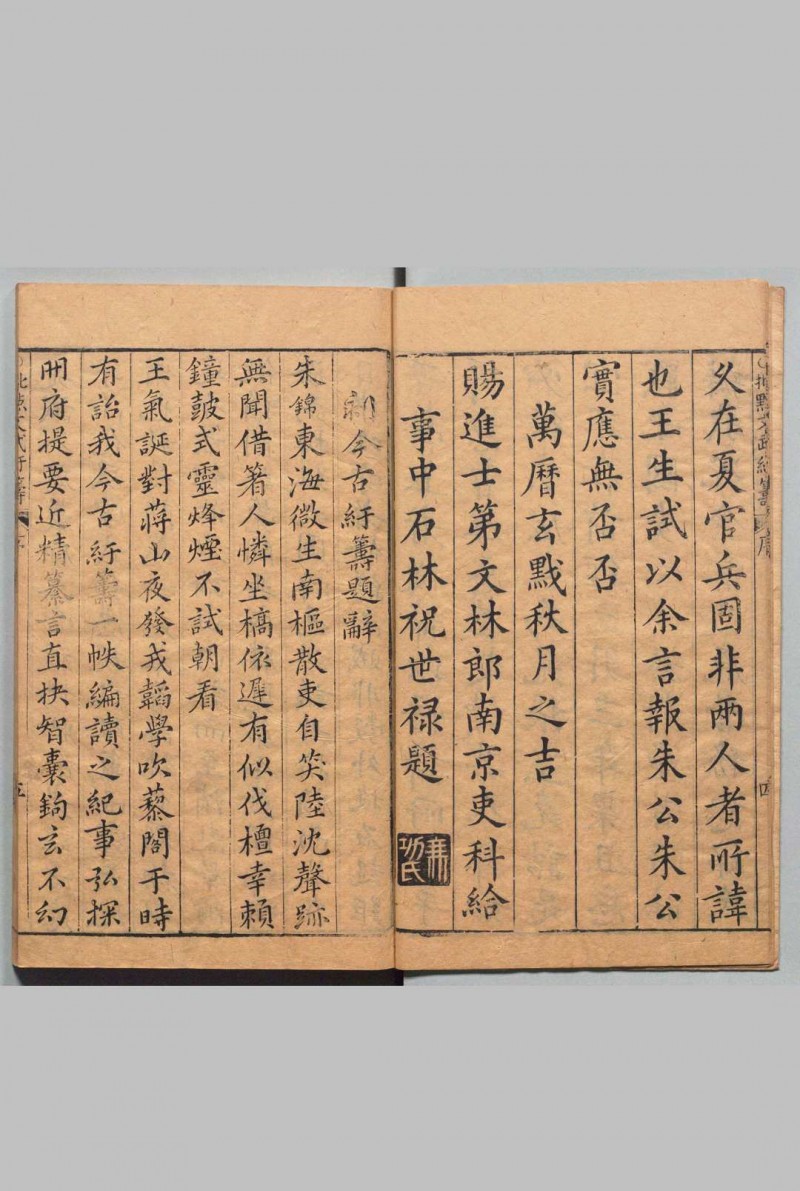 乆在夏官兵固非兩人者所諱
也王生試以余言報朱公朱公
實應無否否
萬曆玄黓秋月之吉
賜進士第文林郎南京吏科給
事中石林祝世禄題
功氏
今古紆籌題辭
朱錦東海微生南樞散吏自笑陸沈聲跡
無聞借箸人憐坐槁依遲有似伐檀幸賴
鐘皷式靈烽煙不試朝看
王氣誕對蔣山夜發戎韜學吹藜閣于時
有詒我今古紆籌一帙編讀之紀事弘探
冊府提要近精纂言直抉智囊鉤玄不幻